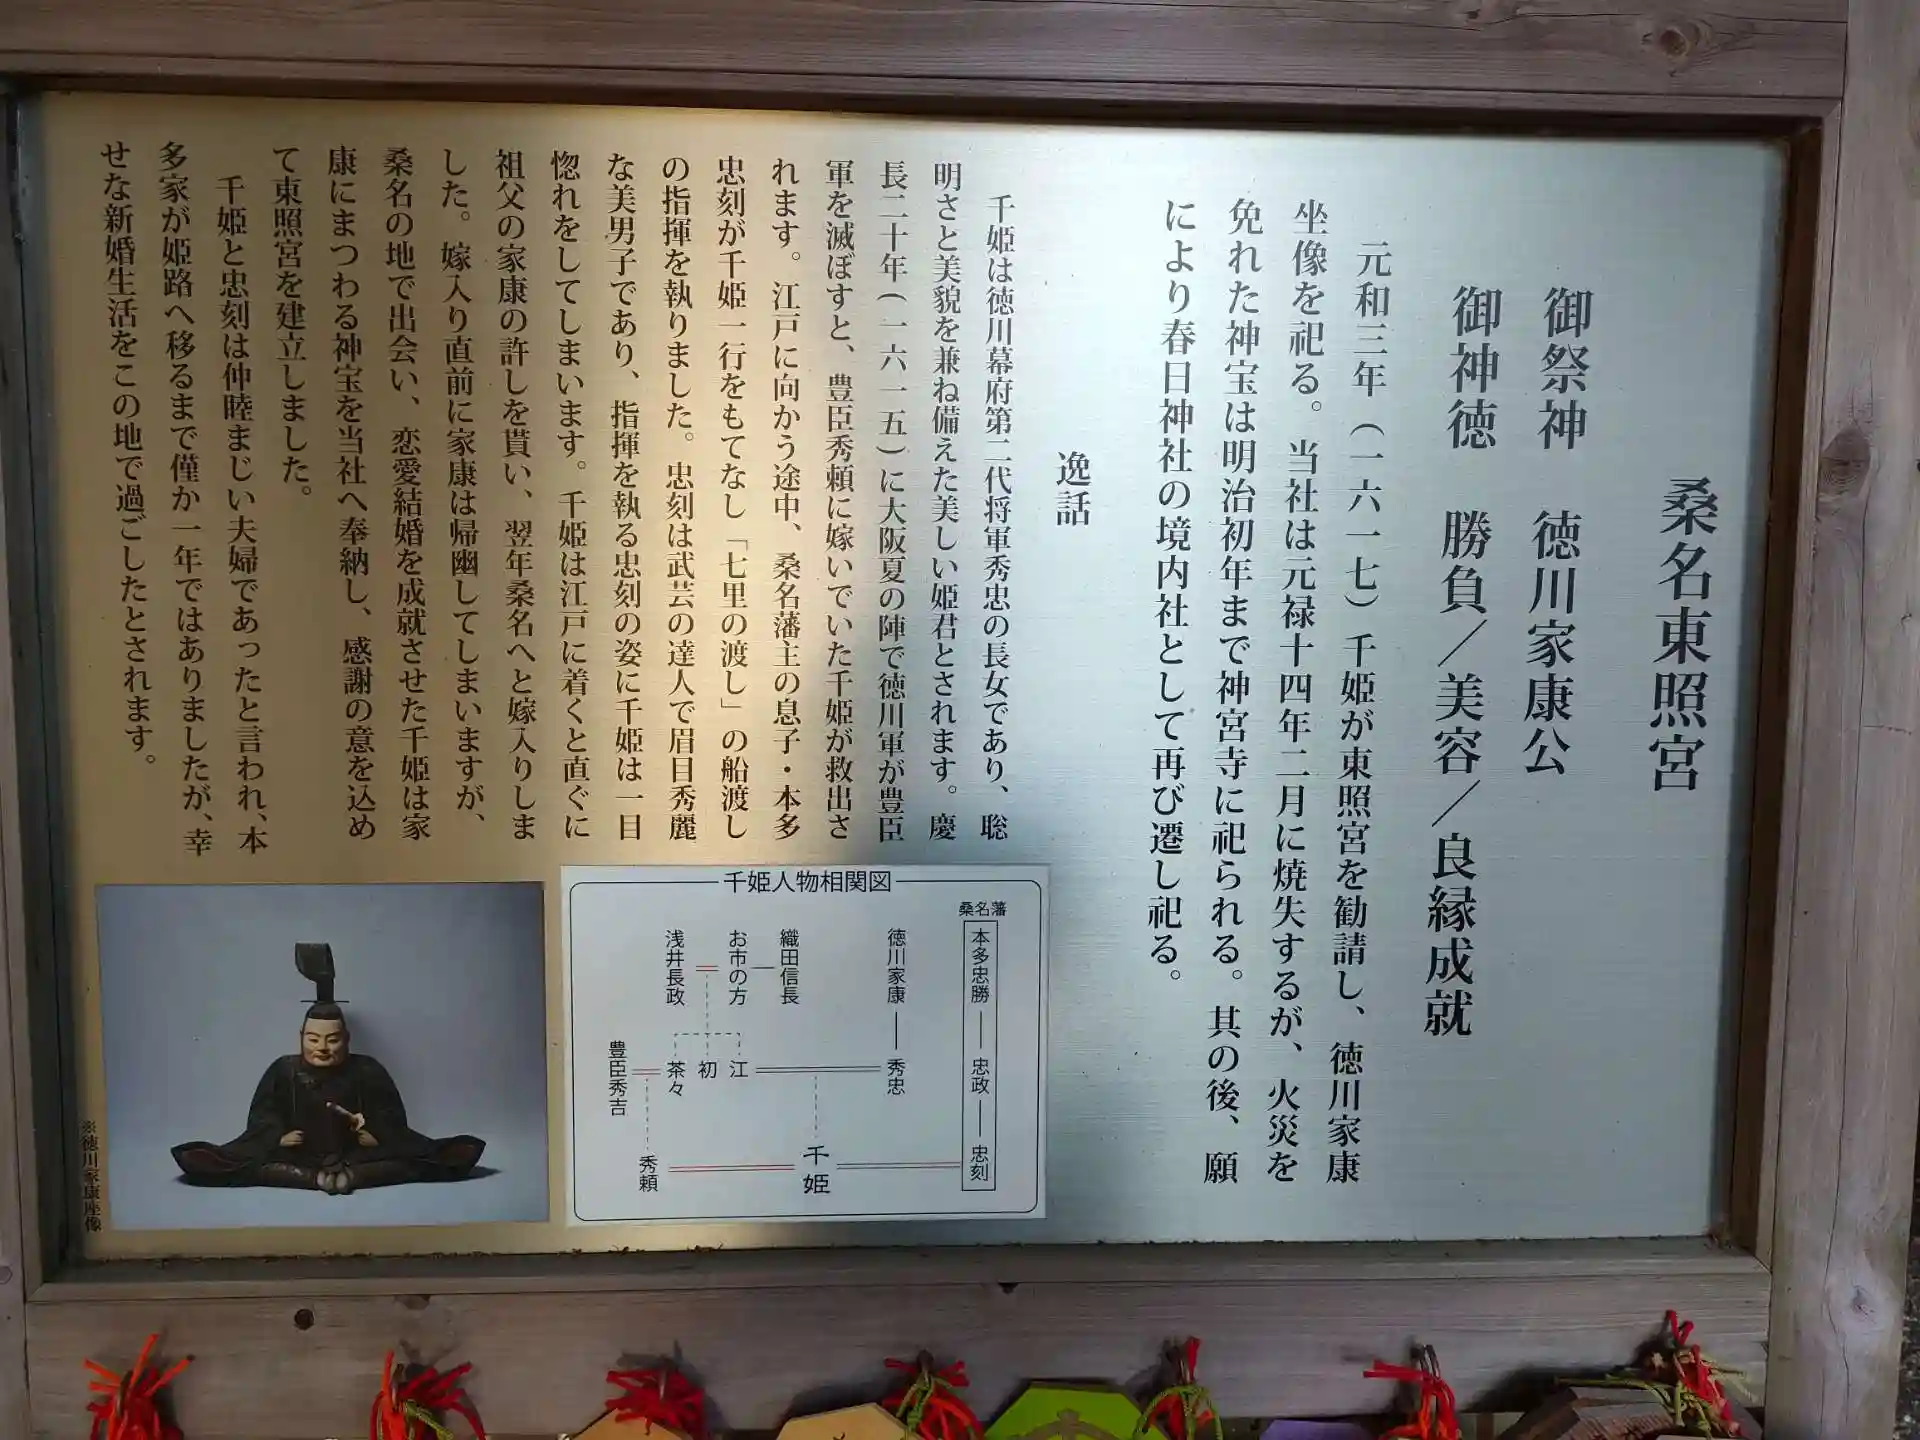 桑名東照宮
御祭神　徳川家康公
御神徳　勝負／美容／良縁成就
元和三年（一六一七）千姫が東照宮を勧請し、徳川家康
坐像を祀る。当社は元禄十四年二月に焼失するが、火災を
免れた神宝は明治初年まで神宮寺に祀られる。其の後、願
により春日神社の境内社として再び遷し祀る。
逸話
千姫は徳川幕府第二代将軍秀忠の長女であり、聡
明さと美貌を兼ね備えた美しい姫君とされます。慶
長二十年（一六一五）に大阪夏の陣で徳川軍が豊臣
軍を滅ぼすと、豊臣秀頼に嫁いでいた千姫が救出さ
れます。江戸に向かう途中、桑名藩主の息子・本多
忠刻が千姫一行をもてなし「七里の渡し」の船渡し
の指揮を執りました。忠刻は武芸の達人で眉目秀麗
な美男子であり、指揮を執る忠刻の姿に千姫は一目
惚れをしてしまいます。千姫は江戸に着くと直ぐに
祖父の家康の許しを貰い、翌年桑名へと嫁入りしま
した。嫁入り直前に家康は帰幽してしまいますが、
桑名の地で出会い、恋愛結婚を成就させた千姫は家
康にまつわる神宝を当社へ奉納し、感謝の意を込め
て東照宮を建立しました。
千姫と忠刻は仲睦まじい夫婦であったと言われ、本
多家が姫路へ移るまで僅か一年ではありましたが、幸
せな新婚生活をこの地で過ごしたとされます。
千姫人物相関図
桑名藩
本多忠勝
忠政
忠刻
徳川家康
秀忠
織田信長
お市の方
浅井長政
江
初
茶々
豊臣秀吉
千姫
秀頼
※徳川家康座像